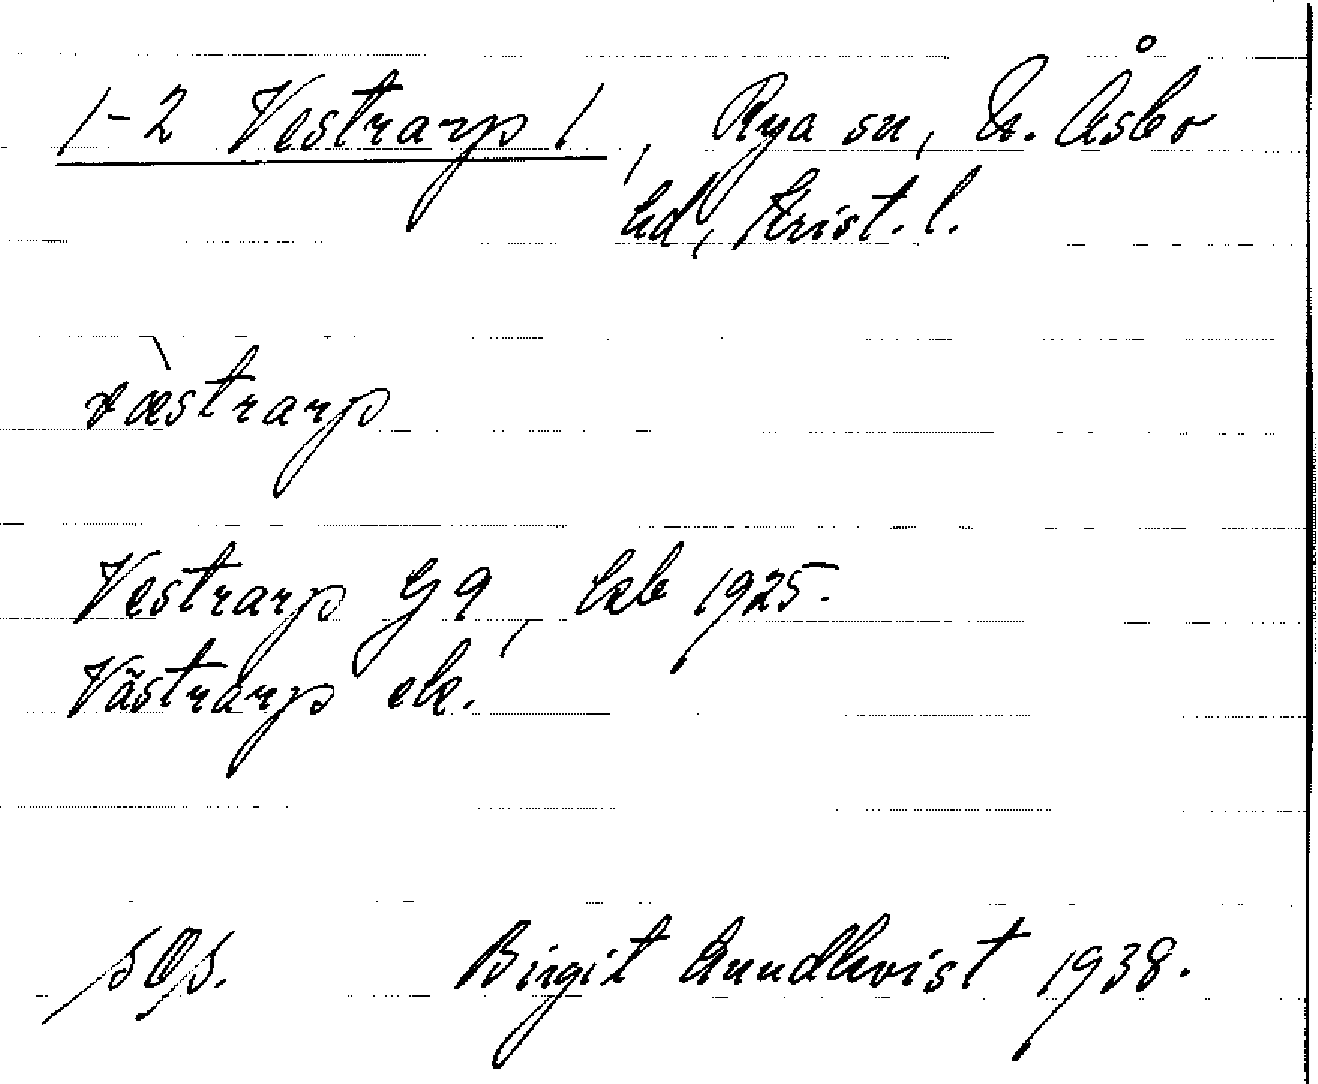 1-2 Vestrarp 1, Rya sn, N. Åsbo
hd, Krist. l.
væ̀strarp
Vestrarp G 9, ekb 1925.
Västrarp ek.
Birgit Lundkvist 1938.